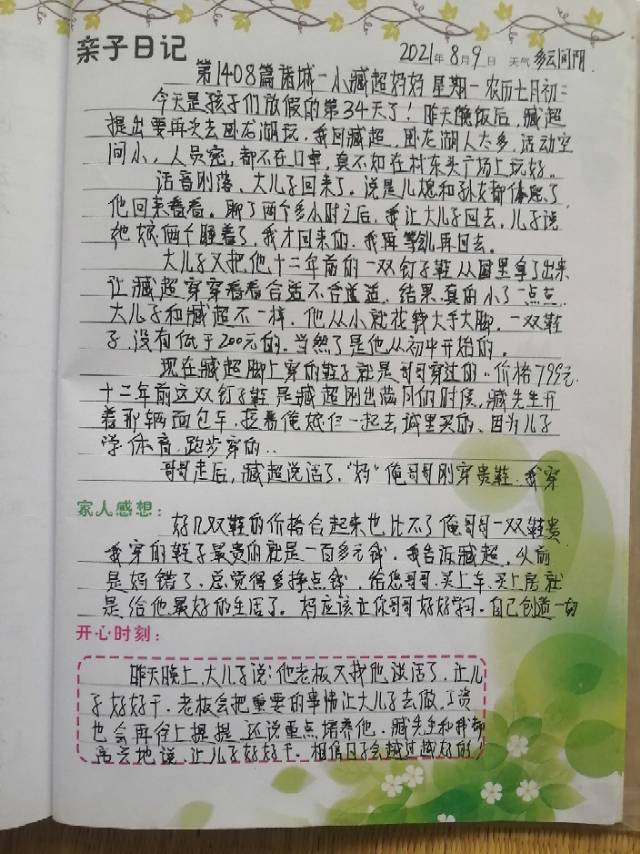 亲子日记
2021年8月9日 天气 多云间阴
第1408篇诸城一小臧超妈妈 星期一农历七月初二
今天是孩子们放假的第34天了！昨天晚饭后，臧超
提出要再次去卧龙湖玩，我回臧超，卧龙湖人太多，活动空
间小，人员密，都不在口罩，真不如在村东头广场上玩好。
话音刚落、大儿子回来了。说是儿媳和孙女都休息了
他回来看看。聊了两个多小时之后，我让大儿子回去，儿子说
她娘俩个睡着了，我才回来的，我再等会儿再回去。
大儿子又把他十二年前的一双钉子鞋从家里拿了出来
让臧超穿穿看看合适不合适，结果真的小了一点点。
大儿子和臧超不一样，他从小就花钱大手大脚，一双鞋
子，没有低于200元的。当然了是他从初中开始的。
现在臧超脚上穿的鞋子就是哥哥穿过的。价格799元
十二年前这双钉子鞋是臧超刚出满月的时候，臧先生开
着那辆面包车，拉着俺娘仨一起去城里买的、因为儿子
学体育，跑步穿的..
哥哥走后，臧超说话了，"妈"俺哥哥刚穿贵鞋，我穿
家人感想：
好几双鞋的价格合起来也比不了俺哥哥一双鞋贵
我穿的鞋子最贵的就是一百多元钱。我告诉臧超，从前
是妈错了，总觉得多挣点钱，给您哥哥，买上车、买上房就
是给他最好的生活了。妈应该让你哥哥好好学习，自己创造一切
开心时刻：
昨天晚上，大儿子说：他老板又找他谈话了，让儿
子好好干，老板会把重要的事情让大儿子去做，工资
也会再往上提提，还说重点培养他，臧先生和我都
高兴地说，让儿子好好干。相信日子会越过越好的！